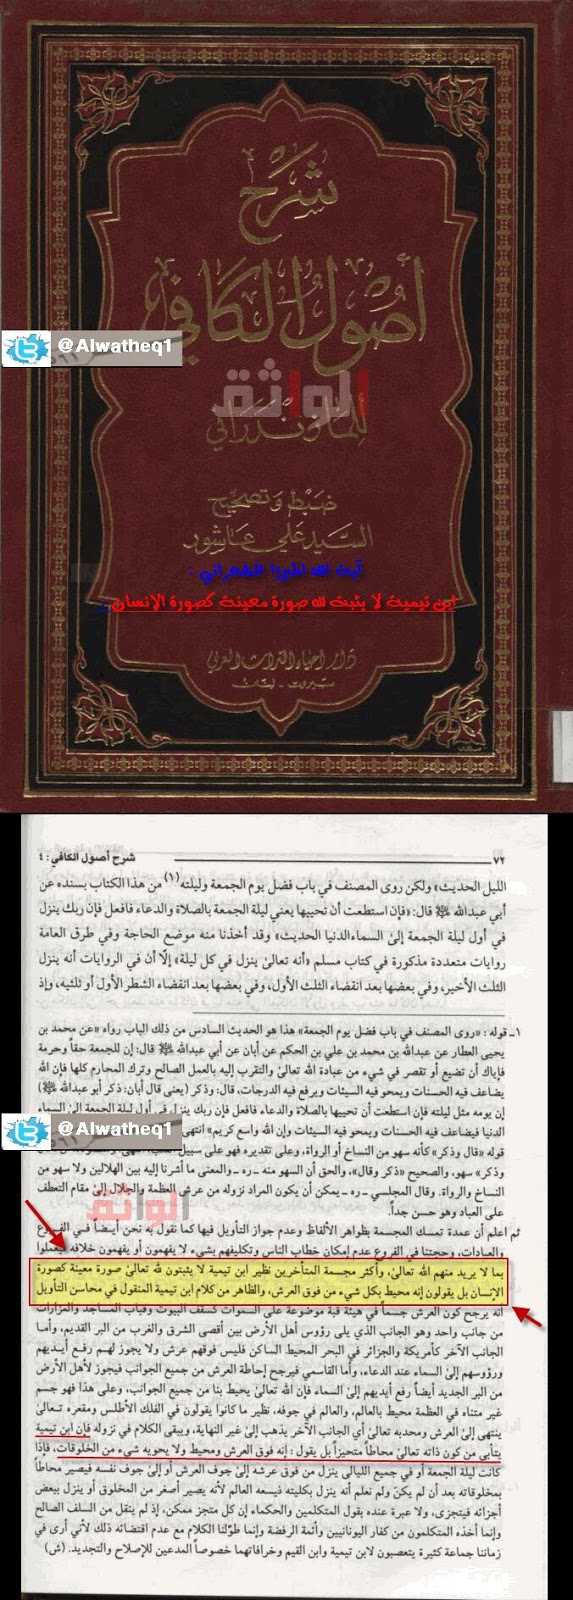 شرح
أصول الكافي
للمازندراني
ضبط وتصحيح
السيد علي عاشور
آية الله الميرزا الشعراني :
ابن تيمية لا يثبت لله صورة معينة كصورة الإنسان..
دار احياء التراث العربي
بيروت - لبنان
@Alwatheq1
الواثق
٧٢
شرح أصول الكافي: ٤
الليل الحديث» ولكن روى المصنف في باب فضل يوم الجمعة وليلته(١) من هذا الكتاب بسنده عن
أبي عبدالله ﷺ قال: «فإن استطعت أن تحييها يعني ليلة الجمعة بالصلاة والدعاء فافعل فإن ربك ينزل
في أول ليلة الجمعة إلى السماء الدنيا الحديث» وقد أخذنا منه موضع الحاجة وفي طرق العامة
روايات متعددة مذكورة في كتاب مسلم «أنه تعالى ينزل في كل ليلة» إلّا أن في الروايات أنه ينزل
الثلث الأخير، وفي بعضها بعد انقضاء الثلث الأول، وفي بعضها بعد انقضاء الشطر الأول أو ثلثيه، وإذ
١ـ قوله: «روى المصنف في باب فضل يوم الجمعة» هذا هو الحديث السادس من ذلك الباب رواه «عن محمد بن
يحيى العطار عن عبدالله بن محمد بن علي بن الحكم عن أبان عن أبي عبدالله ﷺ قال: إن للجمعة حقاً وحرمة
فإياك أن تضيع أو تقصر في شيء من عبادة الله تعالى والتقرب إليه بالعمل الصالح وترك المحارم كلها فإن الله
يضاعف فيه الحسنات ويمحو فيه السيئات ويرفع فيه الدرجات، قال: وذكر (يعني قال أبان: ذكر أبو عبدالله ﷺ)
إن يومه مثل ليلته فإن استطعت أن تحييها بالصلاة والدعاء فافعل فإن ربك ينزل في أول ليلة الجمعة إلى السماء
الدنيا فيضاعف فيه الحسنات ويمحو فيه السيئات وإن الله واسع كريم» انتهى
@Alwatheq1
قوله «قال وذكر» كأنه سهو من النساخ أو الرواة، وعلى تقديره فهو على سبيل
وذكر» سهو، والصحيح «ذكر وقال»، والحق أن السهو منه ـ ره ـ والمعنى ما أشرنا إليه بين الهلالين ولا سهو من
النساخ والرواة. وقال المجلسي ـ ره ـ يمكن أن يكون المراد نزوله من عرش العظمة والجلال إلى مقام التعطف
على العباد وهو حسن جداً.
الواثق
ثم اعلم أن عمدة تمسك المجسمة بظواهر الألفاظ وعدم جواز التأويل فيها كما نقول به نحن أيضاً في الفروع
والعبادات، وحجتنا في الفروع عدم إمكان خطاب الناس وتكليفهم بشيء لا يفهمون أو يفهمون خلافه فيعملوا
بما لا يريد منهم الله تعالى، وأكثر مجسمة المتأخرين نظير ابن تيمية لا يثبتون لله تعالى صورة معينة كصورة
الإنسان بل يقولون إنه محيط بكل شيء من فوق العرش، والظاهر من كلام ابن تيمية المنقول في محاسن التأويل
أنه يرجح كون العرش جسماً في هيئة قبة موضوعة على السموات كسقف البيوت وقباب المساجد والمزارات
من جانب واحد وهو الجانب الذي يلي رؤوس أهل الأرض بين أقصى الشرق والغرب من البر القديم، وأما
الجانب الآخر كأمريكة والجزائر في البحر المحيط الساكن فليس فوقهم عرش ولا يجوز لهم رفع أيديهم
ورؤوسهم إلى السماء عند الدعاء، وأما القاسمي فيرجح إحاطة العرش من جميع الجوانب فيجوز لأهل الأرض
من البر الجديد أيضاً رفع أيديهم إلى السماء فإن الله تعالى يحيط بنا من جميع الجوانب، وعلى هذا فهو جسم
غير متناه في العظمة محيط بالعالم، والعالم في جوفه، نظير ما كانوا يقولون في الفلك الأطلس ومقعره تعالى
ينتهي إلى العرش ومحدبه تعالى أي الجانب الآخر يذهب إلى غير النهاية، ويبقى الكلام في نزوله فإن ابن تيمية
يتأبى من كون ذاته تعالى محاطاً متحيزاً بل يقول: إنه فوق العرش ومحيط ولا يحويه شيء من الخلوقات، فإذا
كانت ليلة الجمعة أو في جميع الليالي ينزل من فوق عرشه إلى جوف العرش أو إلى جوف نفسه فيصير محاطاً
بمخلوقاته بعد أن لم يكن ولم نعلم أنه ينزل بكليته فيسعه العالم لأنه يصير أصغر من المخلوق أو ينزل ببعض
أجزائه فيتجزى، ولا عبرة عنده بقول المتكلمين والحكماء إن كل متجز ممكن، إذ لم ينقل من السلف الصالح
وإنما أخذه المتكلمون من كفار اليونانيين وأئمة الرفضة وإنما طوّلنا الكلام مع عدم اقتضائه ذلك لأني أرى في
زماننا جماعة كثيرة يتعصبون لابن تيمية وابن القيم وخرافاتهما خصوصاً المدعين للإصلاح والتجديد. (ش)